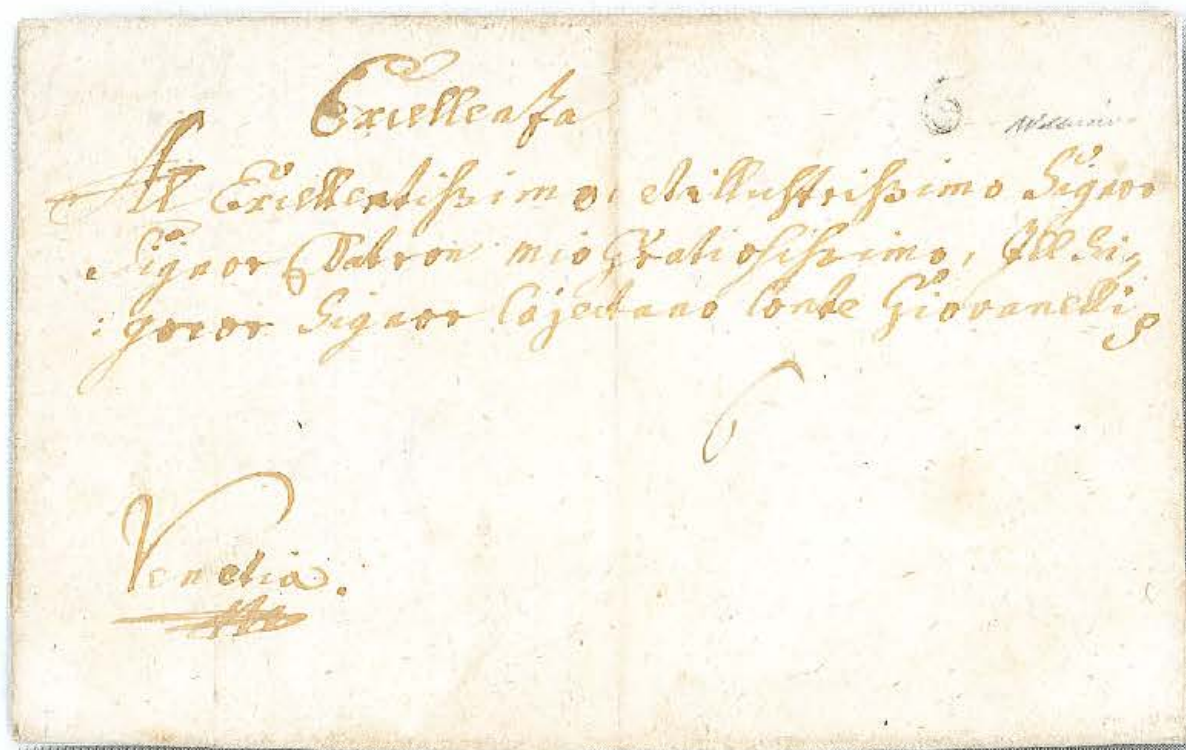 Excellenza
All Excellentissimo, et illustrissimo Signor
Signor Patron mio Gratiosissimo, Ill Si,
gnor Signor Cajetano Conte Giovanelli
6
Venetia.